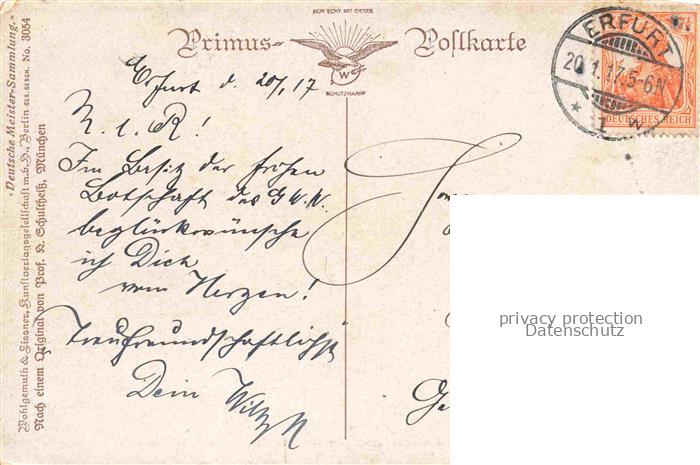 NUR ECHT MIT DIESER
Primus- Postkarte
W
SCHUTZMARKE
ERFURT
20.1.17.5-6N
* 1 w
DEUTSCHES REICH
Erfurt d. 20/1.17
N. l. R!
Im Besitz der frohen
Botschaft des G.W.K.
beglückwünsche
ich Dich
vom Herzen!
Treufreundschaftlichst
Dein Willy
privacy protection
Datenschutz
"Deutsche Meister-Sammlung."
Wohlgemuth & Lissner, Kunstverlagsgesellschaft m.b.H., Berlin GES.GESCH. No. 3054
Nach einem Original von Prof. K. Schultheiß, München